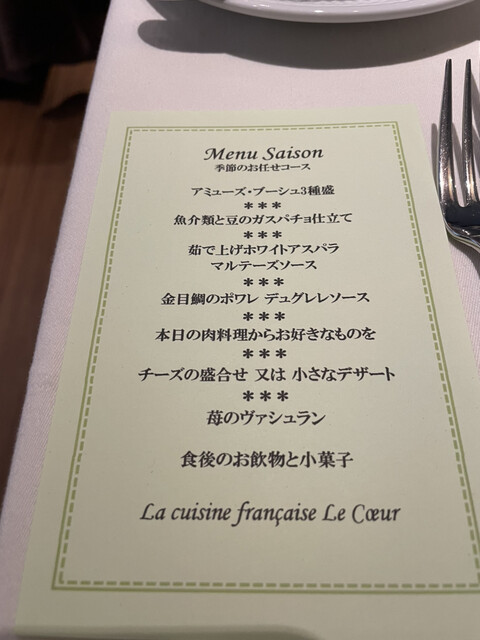 Menu Saison
季節のお任せコース
アミューズ・ブーシュ3種盛
***
魚介類と豆のガスパチョ仕立て
***
茹で上げホワイトアスパラ
マルテーズソース
***
金目鯛のポワレ デュグレレソース
***
本日の肉料理からお好きなものを
***
チーズの盛合せ 又は 小さなデザート
***
苺のヴァシュラン
食後のお飲物と小菓子
La cuisine française Le Cœur